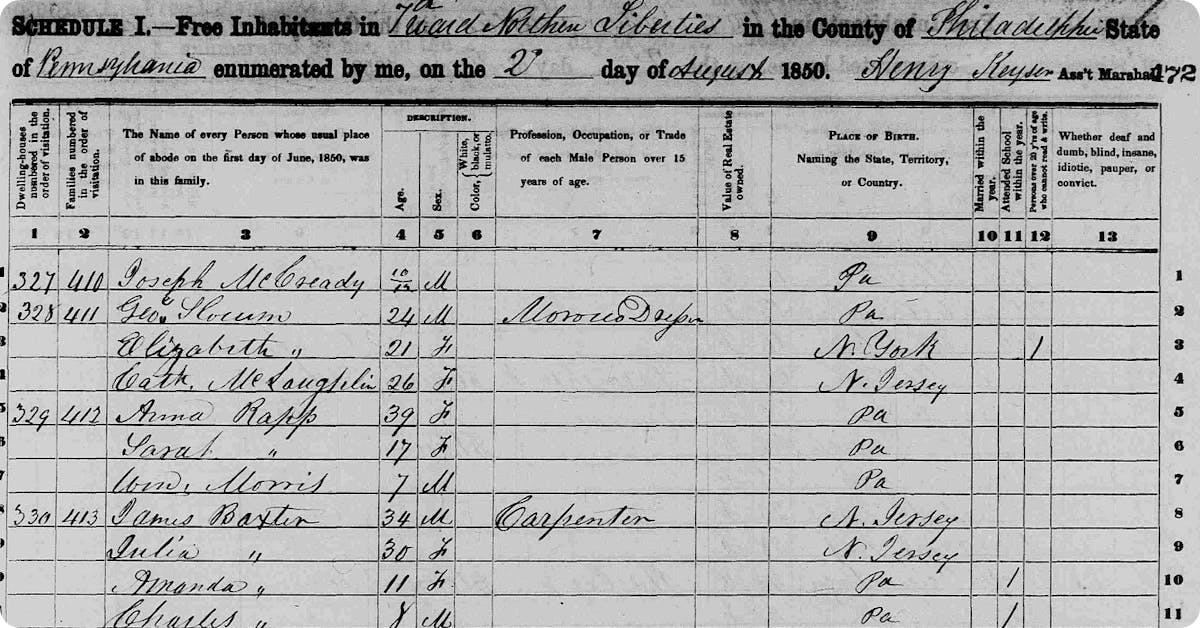 SCHEDULE I.—Free Inhabitants in Ward Northern Liberties in the County of Philadelphia State
of Pennsylvania enumerated by me, on the 2d day of August 1850. Henry Keyser Ass't Marshal 172
Dwelling-houses numbered in the order of visitation.
Families numbered in the order of visitation.
The Name of every Person whose usual place of abode on the first day of June, 1850, was in this family.
DESCRIPTION.
Age.
Sex.
Color, { White, black, or mulatto.
Profession, Occupation, or Trade of each Male Person over 15 years of age.
Value of Real Estate owned.
PLACE OF BIRTH. Naming the State, Territory, or Country.
Married within the year.
Attended School within the year.
Persons over 20 y'rs of age who cannot read & write.
Whether deaf and dumb, blind, insane, idiotic, pauper, or convict.
1 2 3 4 5 6 7 8 9 10 11 12 13
1 327 410 Joseph McCready 10/12 M Pa 1
2 328 411 Geo. Slocum 24 M Morocco Dresser Pa 2
3 Elizabeth " 21 F N. York / 3
4 Cath. McLaughlin 26 F N. Jersey 4
5 329 412 Anna Rapp 39 F Pa 5
6 Sarah " 17 F Pa 6
7 Wm. Morris 7 M Pa 7
8 330 413 James Baxter 34 M Carpenter N. Jersey 8
9 Julia " 30 F N. Jersey 9
Amanda " 11 F Pa / 10
Charles " 8 M Pa / 11